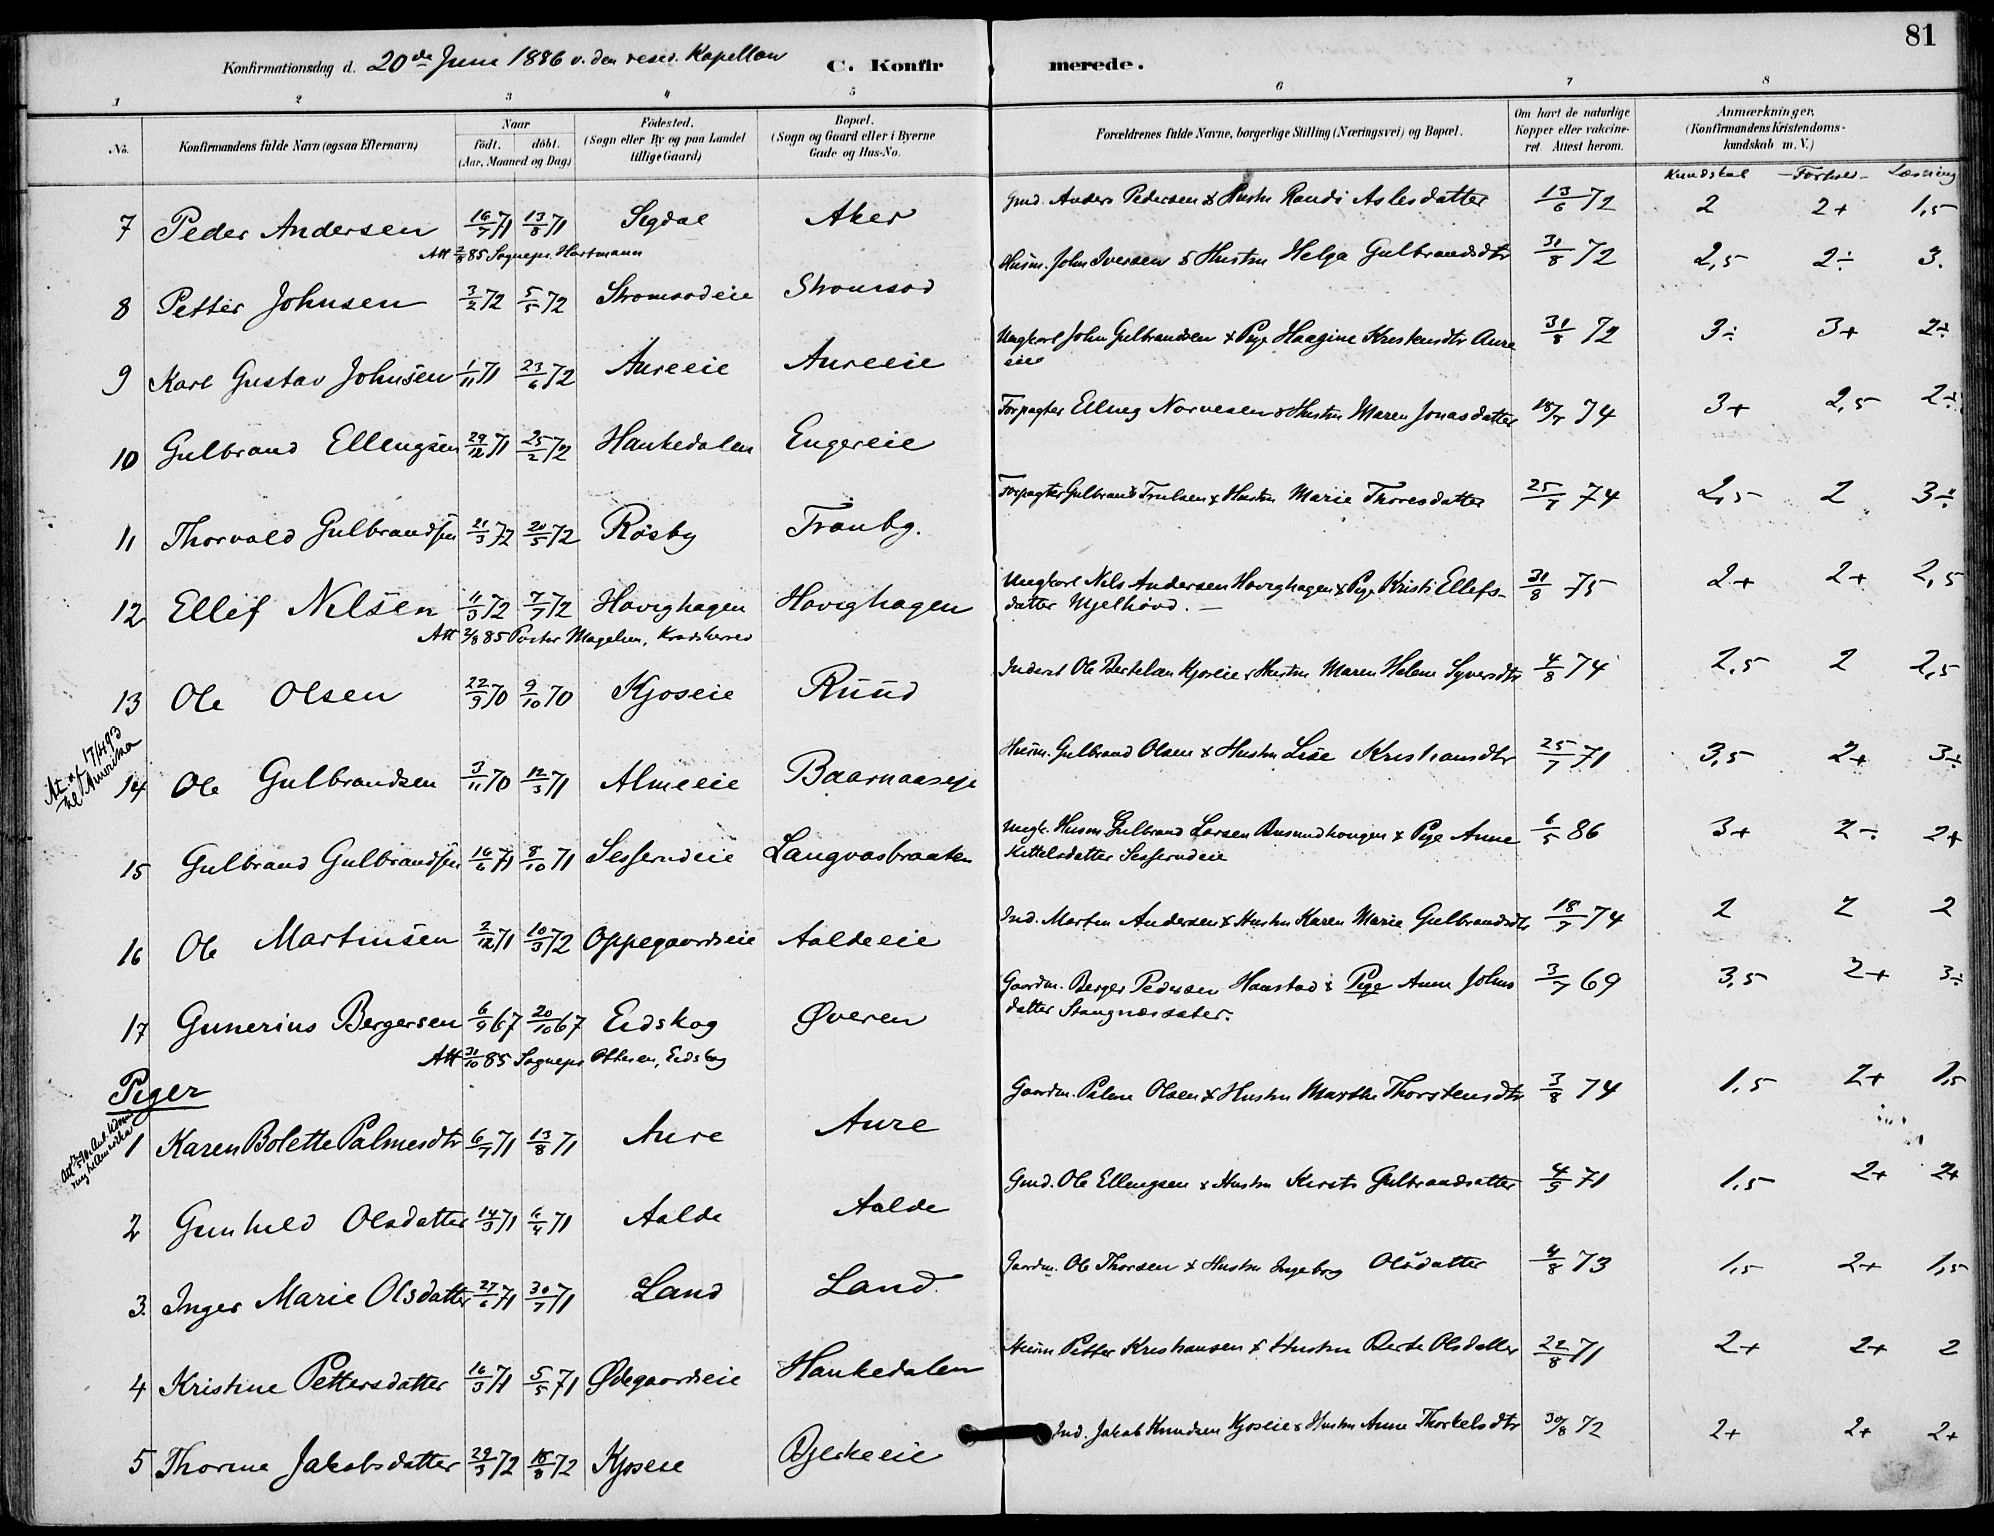 81
Konfirmationsdag d. 20de Juni 1886 v. den resid. Kapellan C. Konfirmerede.
1 2 3 4 5 6 7 8
No. Konfirmandens fulde Navn (ogsaa Efternavn) Naar født. døbt. (Aar, Maaned og Dag) Fødested. (Sogn eller By og paa Landet tillige Gaard) Bopæl. (Sogn og Gaard eller i Byerne Gade og Hus-No. Forældrenes fulde Navne, borgerlige Stilling (Næringsvei) og Bopæl. Om havt de naturlige Kopper eller vakcineret. Attest herom. Anmærkninger. (Konfirmandens Kristendomskundskab m. V.)
Kundskab Forhold Læsning
7 Peder Andersen 16/7 71 13/8 71 Sigdal Aker Gmd. Anders Pedersen & Hustru Randi Aslesdatter 13/6 72 2 2+ 1,5
Att 2/8 85 Sognepr. Hartmann
8 Petter Johnsen 3/2 72 5/5 72 Stromsodeie Stromsod Husm. John Iversen & Hustru Helga Gulbrandsdtr 31/8 72 2,5 2÷ 3.
9 Karl Gustav Johnsen 1/11 71 23/6 72 Aureeie Aureeie Ungkarl John Gulbrandsen & Pige Haagine Kristensdtr Aure
eie 31/8 72 3÷ 3+ 2÷
10 Gulbrand Ellingsen 29/12 71 25/2 72 Hankedalen Engereie Forpagter Elling Narvesen & Hustru Maren Jonasdatter 18/7 74 3+ 2,5 2÷
11 Thorvald Gulbrandsen 21/3 72 20/5 72 Røsby Tranbg. Forpagter Gulbrand Trulsen & Hustru Marie Thoresdatter 25/7 74 2,5 2 3÷
12 Ellef Nilsen 11/3 72 7/7 72 Hovighagen Hovighagen Ungkarl Nils Andersen Hovighagen & Pige Kristi Ellefs-
datter Mjelhovd. 31/8 75 2+ 2+ 2,5
Att 2/8 85 Pastor Magelsen, Kradsherred
13 Ole Olsen 22/9 70 9/10 70 Kjoseie Ruud Inderst Ole Bertelsen Kjoseie & Hustru Maren Helene Syversdtr 4/8 74 2,5 2 2,5
At. 17/4 93
til Amerika
14 Ole Gulbrandsen 3/11 70 12/3 71 Almeeie Baarnaaseje Husm. Gulbrand Olsen & Hustru Lise Kristiansdtr 25/7 71 3,5 2+ 3÷
15 Gulbrand Gulbrandsen 16/6 71 8/10 71 Sesserudeie Langvasbraaten Ungk. Husm Gulbrand Larsen Busundhougen & Pige Anne
Kittelsdatter Sesserudeie 6/5 86 3+ 2÷ 2+
16 Ole Martinsen 2/12 71 10/3 72 Oppegaardseie Aaldeeie Ind. Martin Andersen & Hustru Karen Marie Gulbrandsdtr 18/7 74 2 2 2
17 Gunerius Bergersen 6/9 67 20/10 67 Eidskog Øveren Gaardm. Berger Pedersen Haustad & Pige Anne Johns
datter Stangnæssæter. 3/7 69 3,5 2+ 3÷
Att 31/10 85 Sognepr Ottesen, Eidskog
Piger
1 Karen Bolette Palmesdtr 6/7 71 13/8 71 Aure Aure Gaardm. Palme Olsen & Hustru Marthe Thorstensdtr 3/8 74 1,5 2+ 1,5
2 Gunhild Olsdatter 14/3 71 6/4 71 Aalde Aalde Gmd. Ole Ellingsen & Hustru Kirsti Gulbrandsdatter 4/9 71 1,5 2+ 2+
3. Inger Marie Olsdatter 27/6 71 30/7 71 Land Land. Gaardm. Ole Thorsen & Hustru Ingeborg Olsdatter 4/8 73 1,5 2+ 1,5
4 Kristine Pettersdatter 16/3 71 5/5 71 Ødegaardseie Hankedalen Husm Petter Kristiansen & Hustru Berte Olsdatter 22/8 71 2+ 2+ 2
5 Thorine Jakobsdatter 29/3 72 18/8 72 Kjoseie Bjerkeeie Ind. Jakob Knudsen Kjoseie & Hustru Anne Thorkelsdtr 30/8 72 2+ 2+ 2+